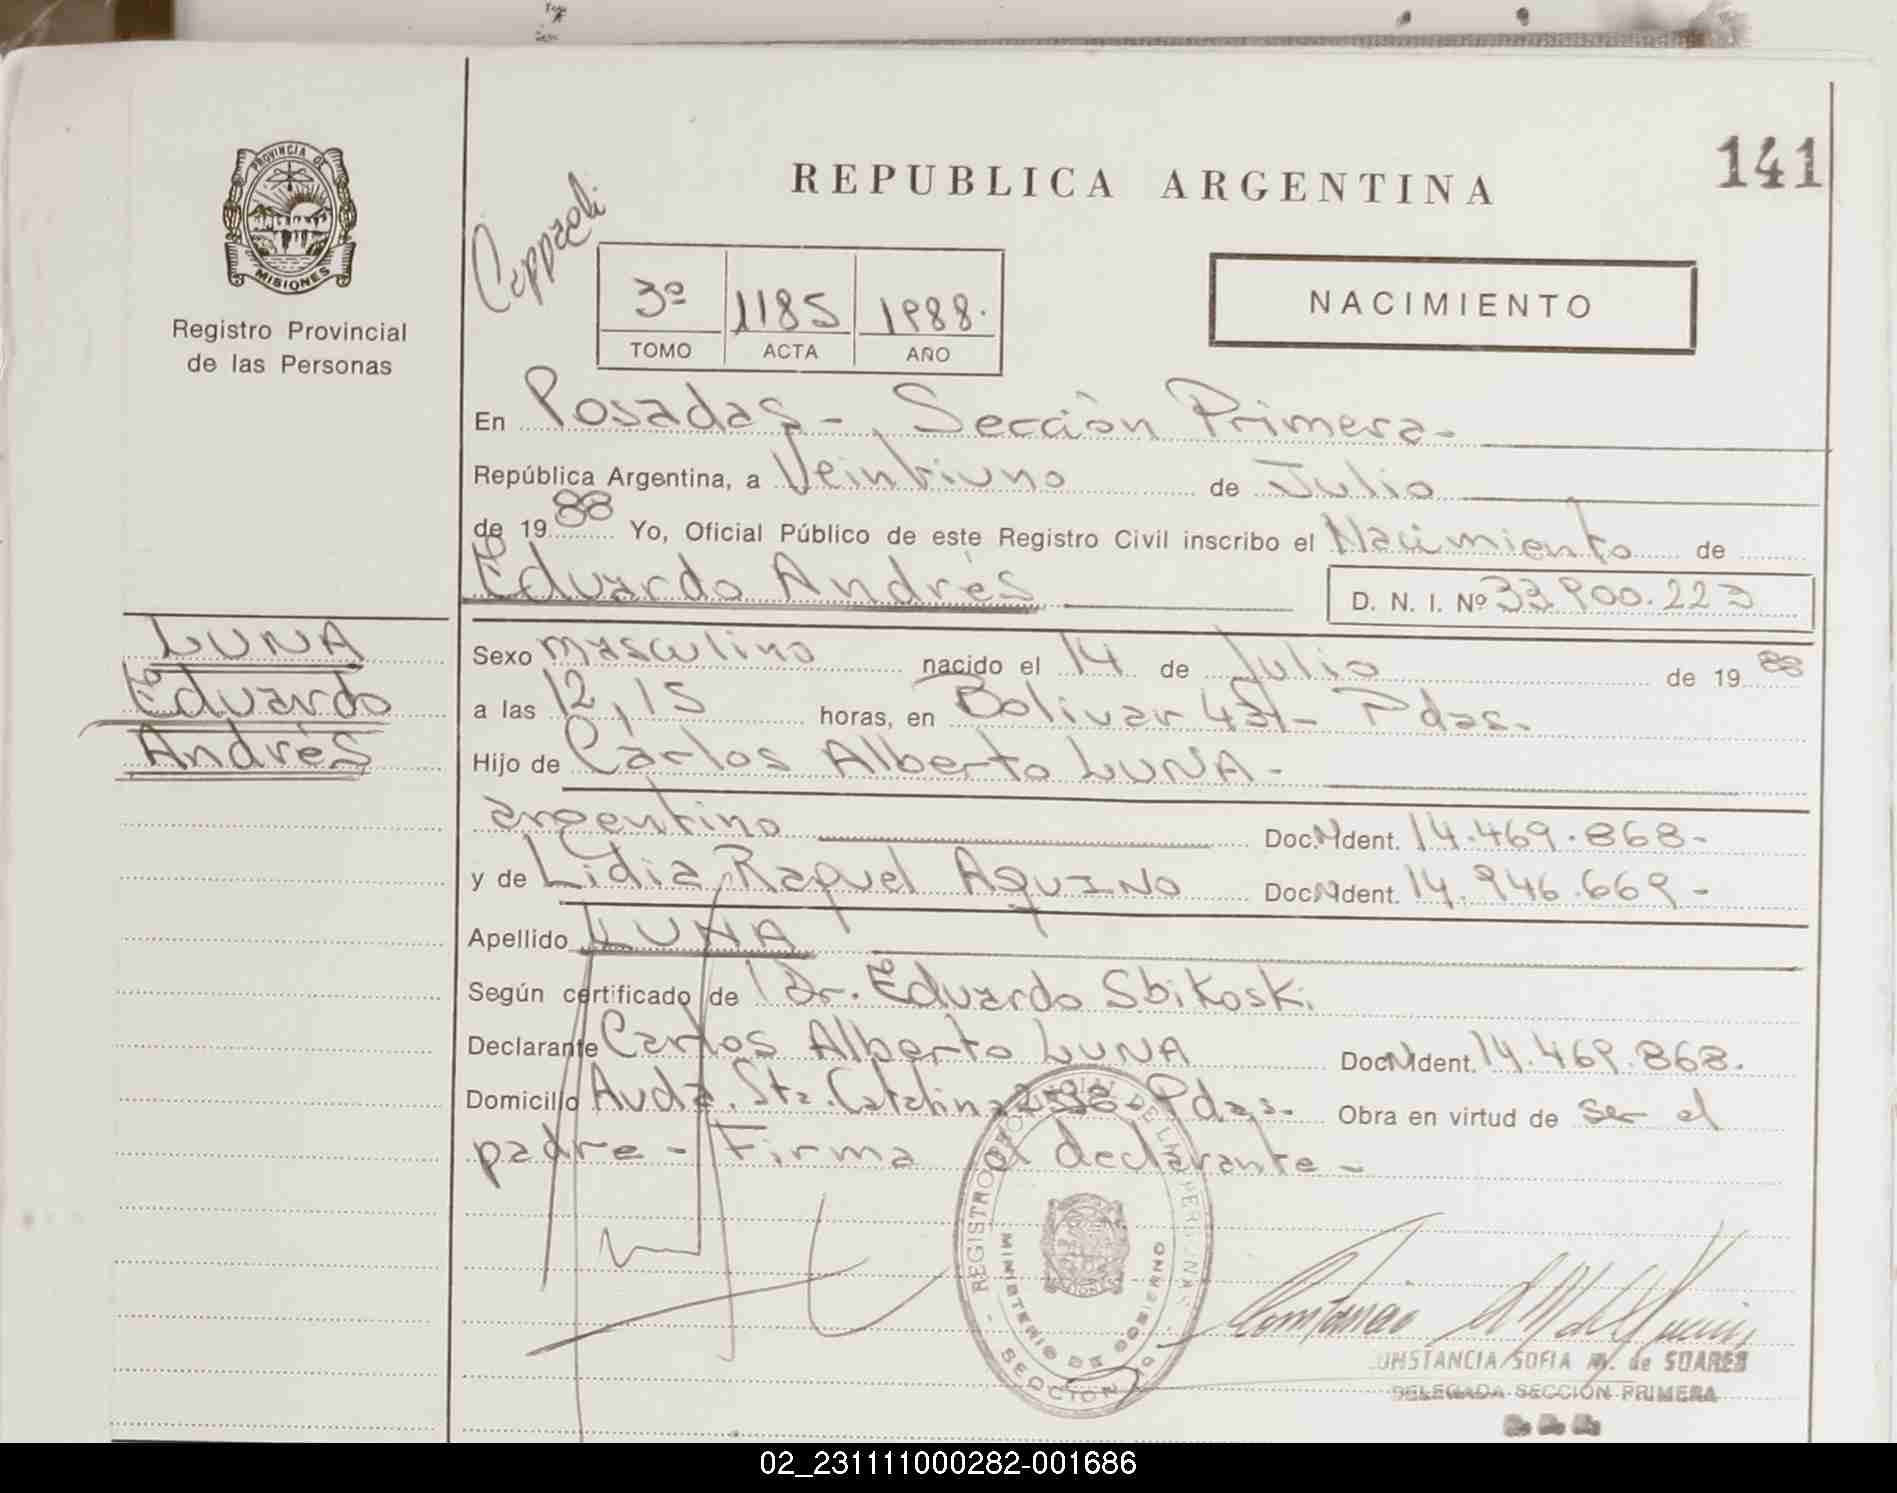 141
REPUBLICA ARGENTINA
PROVINCIA DE
MISIONES
Registro Provincial
de las Personas
3º 1185 1988.
TOMO ACTA AÑO
NACIMIENTO
En Posadas - Sección Primera -
República Argentina, a Veintiuno de Julio
de 1988 Yo, Oficial Público de este Registro Civil inscribo el Nacimiento de
Eduardo Andrés D. N. I. Nº 33.900.223
LUNA
Eduardo
Andrés
Sexo masculino nacido el 14 de Julio de 1988
a las 12,15 horas, en Bolivar - Pdas.
Hijo de Carlos Alberto LUNA -
argentino Doc. Ident. 14.469.868 -
y de Lidia Raquel AQUINO Doc. Ident. 14.946.669 -
Apellido LUNA
Según certificado de Dr. Eduardo Sbikoski
Declarante Carlos Alberto LUNA Doc. Ident. 14.469.868.
Domicilio Avda. Sta. Catalina - Pdas. Obra en virtud de ser el
padre - Firma el declarante -
REGISTRO PROVINCIAL DE LAS PERSONAS
MINISTERIO DE GOBIERNO
SECCION
CONSTANCIA SOFIA M. de SUARES
DELEGADA SECCIÓN PRIMERA
02_231111000282-001686